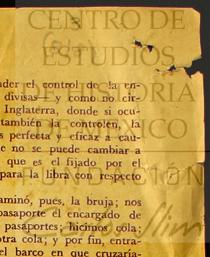 CENTRO DE
ESTUDIOS
DE HISTORIA
der el control de la en-
divisas— y como no cir-
Inglaterra, donde si ocu-
también la controlen, la
s perfecta y eficaz a cau-
e no se puede cambiar a
que es el fijado por el
para la libra con respecto
FUNDACIÓN
aminó, pues, la bruja; nos
pasaporte el encargado de
pasaportes; hicimos cola;
otra cola; y por fin, entra-
el barco en que cruzaría-